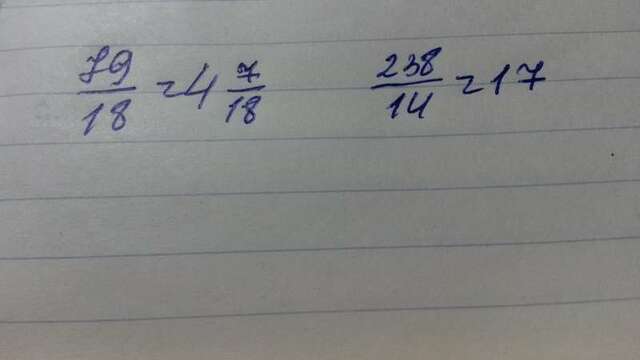 79/18 = 4 7/18    238/14 = 17